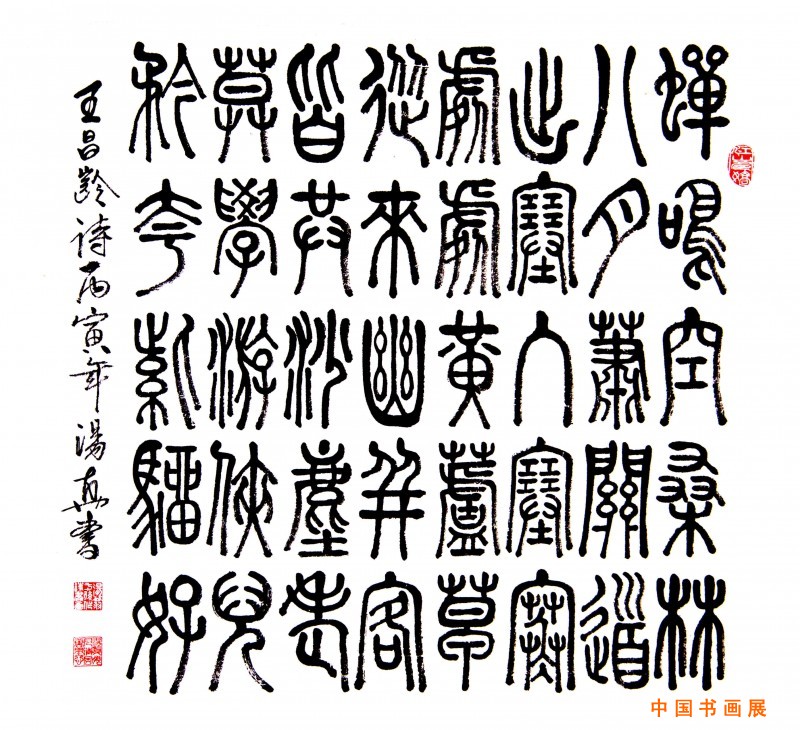 蟬鳴空桑林
八月蕭關道
出塞入塞寒
處處黃蘆草
從來幽并客
皆共沙塵老
莫學游俠兒
矜夸紫騮好
王昌齡詩丙寅年湯真書
中国书画展